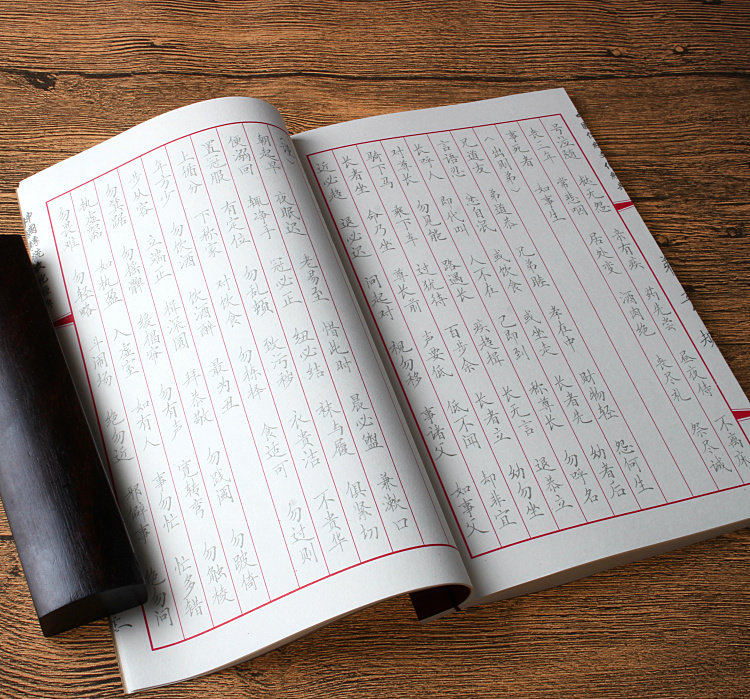 号泣随 挞无怨 亲有疾 药先尝 昼夜侍 不离床
丧三年 常悲咽 居处变 酒肉绝 丧尽礼 祭尽诚
事死者 如事生
〈出则弟〉
兄道友 弟道恭 兄弟睦 孝在中 财物轻 怨何生
言语忍 忿自泯 或饮食 或坐走 长者先 幼者后
长呼人 即代叫 人不在 己即到 称尊长 勿呼名
对尊长 勿见能 路遇长 疾趋揖 长无言 退恭立
骑下马 乘下车 过犹待 百步余 长者立 幼勿坐
长者坐 命乃坐 尊长前 声要低 低不闻 却非宜
近必趋 退必迟 问起对 视勿移 事诸父 如事父
朝起早 夜眠迟 老易至 惜此时 晨必盥 兼漱口
便溺回 辄净手 冠必正 纽必结 袜与履 俱紧切
置冠服 有定位 勿乱顿 致污秽 衣贵洁 不贵华
上循分 下称家 对饮食 勿拣择 食适可 勿过则
年方少 勿饮酒 饮酒醉 最为丑
步从容 立端正 揖深圆 拜恭敬 勿践阈 勿跛倚
勿箕踞 勿摇髀 缓揭帘 勿有声 宽转弯 勿触棱
执虚器 如执盈 入虚室 如有人 事勿忙 忙多错
勿畏难 勿轻略 斗闹场 绝勿近 邪僻事 绝勿问